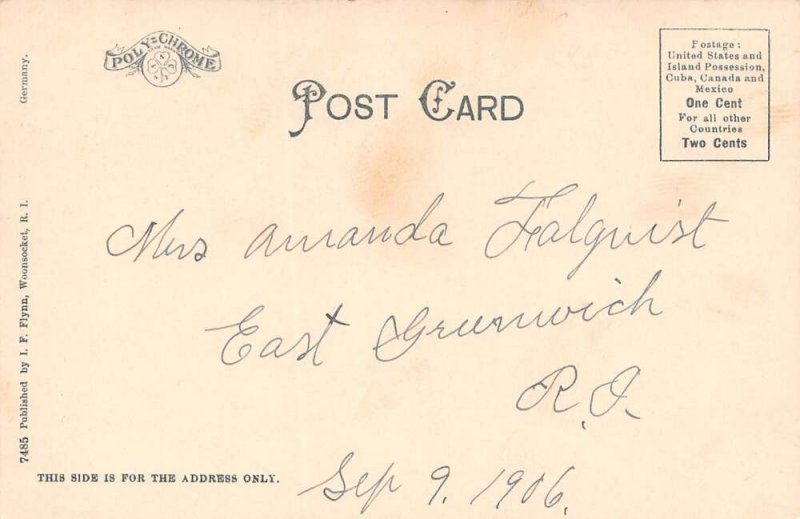 POLY-CHROME
Germany.
POST CARD
Postage:
United States and
Island Possession,
Cuba, Canada and
Mexico
One Cent
For all other
Countries
Two Cents
Mrs Amanda Falquist
East Greenwich
R.I.
Sep 9. 1906.
7485 Published by I. F. Flynn, Woonsocket, R. I.
THIS SIDE IS FOR THE ADDRESS ONLY.